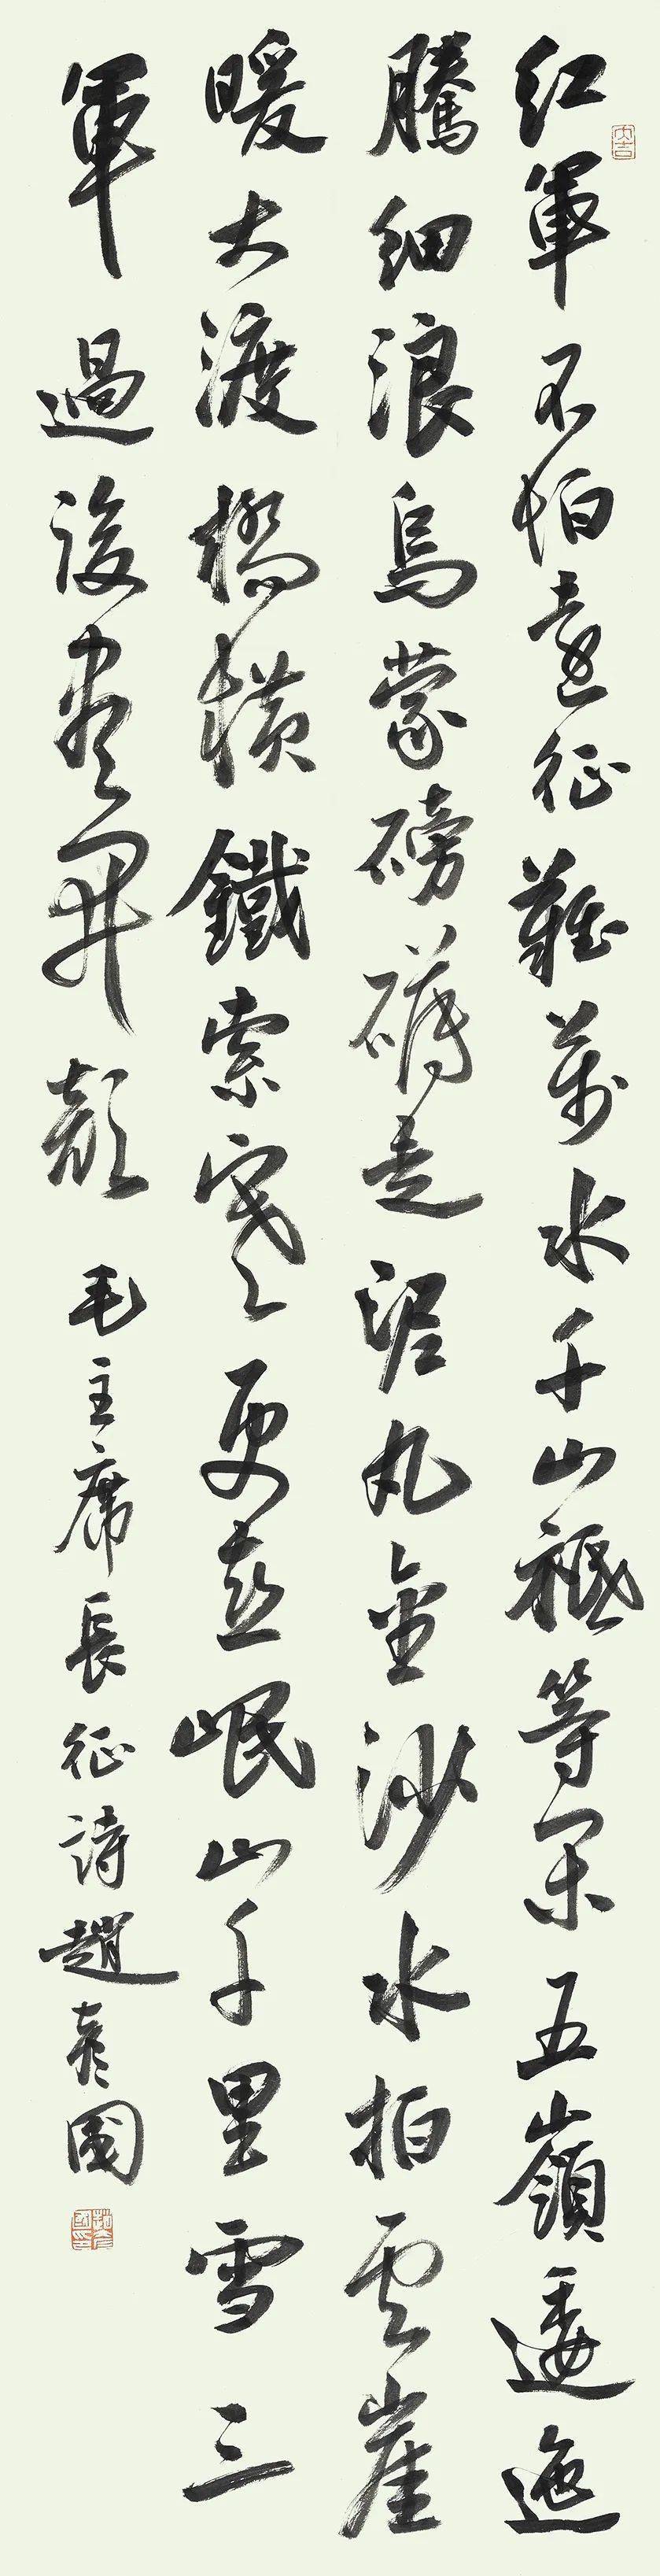 红軍不怕遠征難萬水千山祗等閑五嶺逶迤
騰細浪烏蒙磅礴走泥丸金沙水拍雲崖
暖大渡橋橫鐵索寒更喜岷山千里雪三
軍過後盡開顏 毛主席長征詩趙彥國